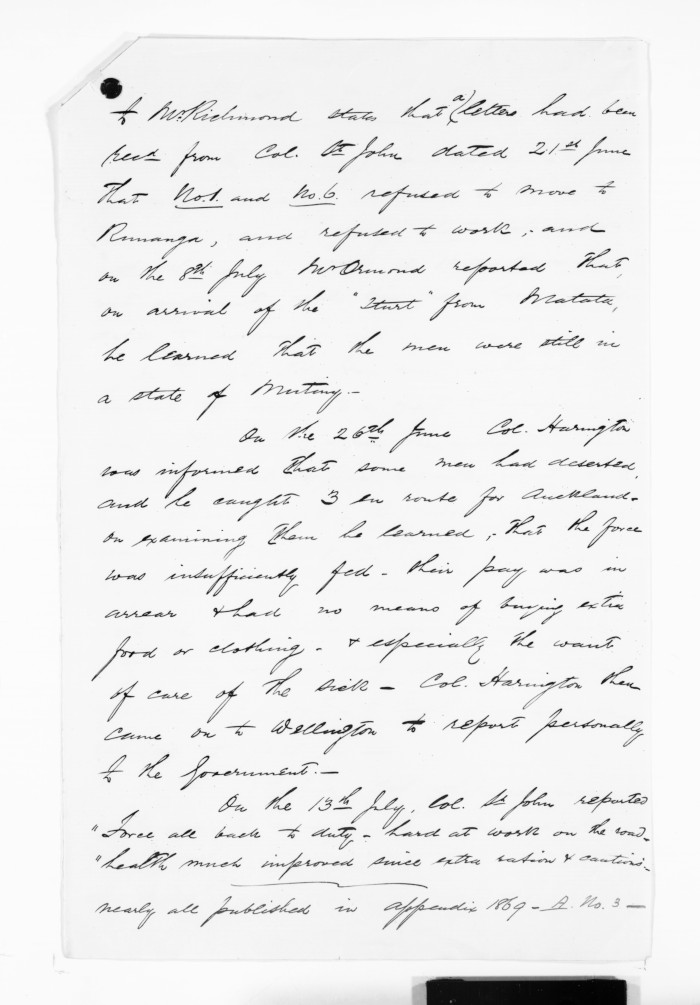 to Mr Richmond states that a (letters had been
recd from Col. St John dated 21st June
that No. 1. and No. 6. refused to move to
Runanga, and refused to work; and
on the 8th July Mr Ormond reported that,
on arrival of the "Sturt" from Matata,
he learned that the men were still in
a state of Mutiny. -
On the 26th June Col. Harington
was informed that some men had deserted,
and he caught 3 en route for Auckland -
on examining them he learned, that the force
was insufficiently fed - their pay was in
arrear & had no means of buying extra
food or clothing - & especially the want
of care of the sick - Col. Harington then
came on to Wellington to report personally
to the Government. -
On the 13th July, Col. St John reported
"Force all back to duty - hard at work on the road -
"health much improved since extra ration &
nearly all published in appendix 1869 - A. No. 3 -